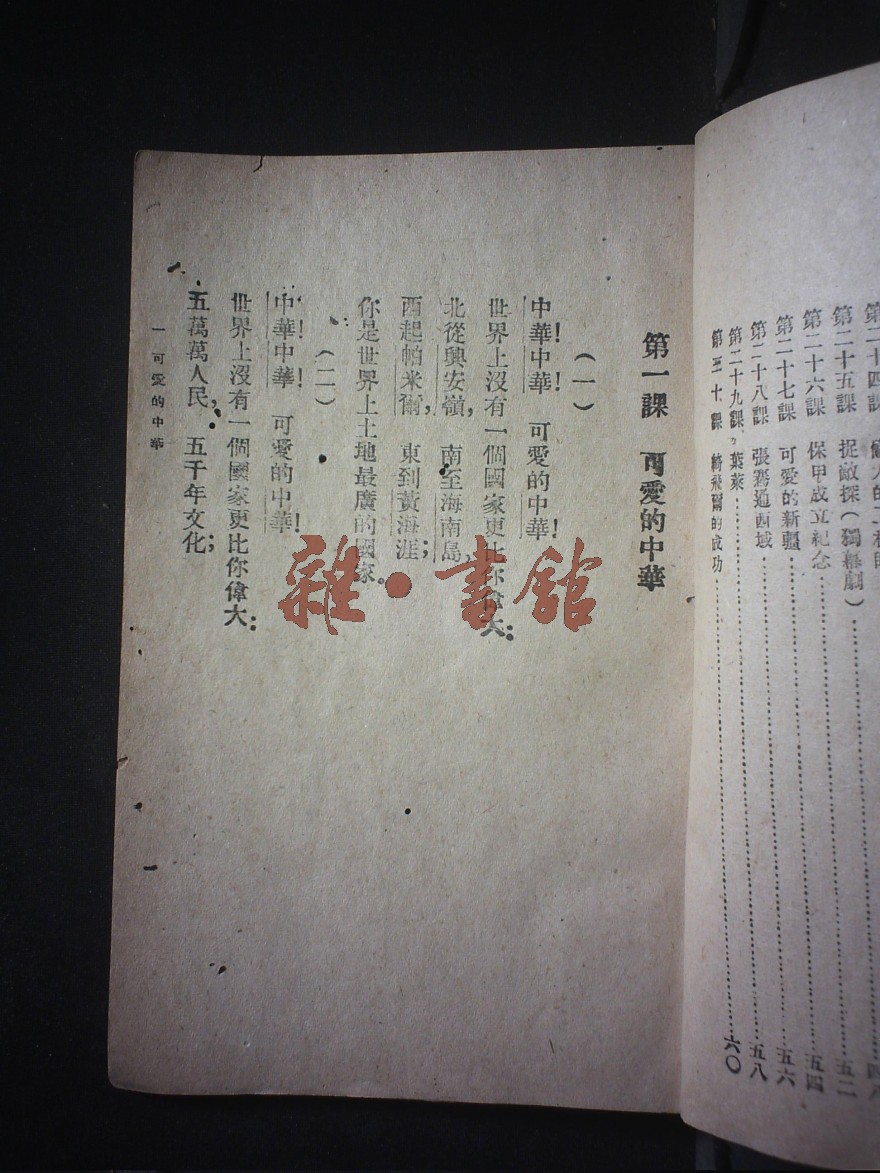 第二十五課 捉敵探（獨幕劇）……五二
第二十六課 保甲成立紀念……五四
第二十七課 可愛的新疆……五六
第二十八課 張騫通西域……五八
第二十九課 葉萊
第三十課 綺飛爾的成功……六〇
第一課 可愛的中華
（一）
中華！中華！ 可愛的中華！
世界上沒有一個國家更比你偉大：
北從興安嶺， 南至海南島，
西起帕米爾， 東到黃海涯；
你是世界上土地最廣的國家。
（二）
中華！中華！ 可愛的中華！
世界上沒有一個國家更比你偉大：
五萬萬人民， 五千年文化；
一 可愛的中華
雜·書館